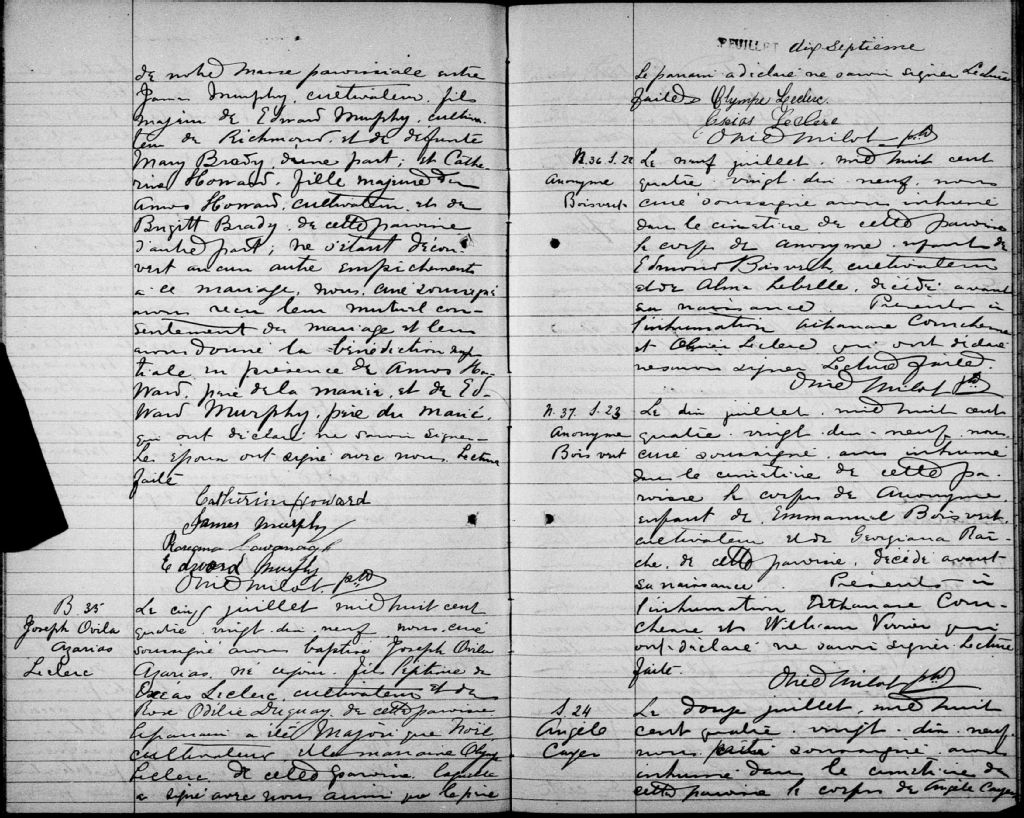 de notre Messe paroissiale entre
James Murphy, cultivateur, fils
majeur de Edward Murphy, cultiva-
teur de Richmond, et de defunte
Mary Brady, d'une part; et Cathe
rine Howard, fille majeure de
Amos Howard, cultivateur, et de
Brigitt Brady, de cette paroisse
d'autre part; ne s'étant décou-
vert aucun autre empêchement
a ce mariage, nous, curé soussigné
avons recu leur mutuel con-
sentement du mariage et leur
avons donné la bénédiction nup
tiale en présence de Amos Ho-
ward, père de la mariée, et de Ed-
ward Murphy, père du marié,
qui ont déclaré ne savoir signer
Les Epoux ont signé avec nous. Lecture
faite
Catherine Howard
James Murphy
Cavanagh
Edward Murphy
Ovid Milot, ptre
B 35
Joseph Ovila
Azarias
Leclerc
Le cinq juillet mil huit cent
quatre vingt dix neuf, nous curé
soussigné avons baptisé Joseph Ovila
Azarias, né ce jour, fils légitime de
Oxias Leclerc, cultivateur et de
Rose Odilie Duguay de cette paroisse
Le parrain a été Majorique Noël,
cultivateur et la marraine Olympe
Leclerc, de cette paroisse laquelle
a signé avec nous ainsi que le père
FEUILLET dix septième
Le parrain a déclaré ne savoir signer Lecture
faite Olympe Leclerc
Oxias Leclerc
Ovid Milot ptre
N. 36 S. 22
Anonyme
Boisvert
Le neuf juillet mil huit cent
quatre vingt dix neuf, nous
curé soussigné avons inhumé
dans le cimetière de cette paroisse
le corps de anonyme enfant de
Edmond Boisvert, cultivateur
et de Alma Lebelle, décédé avant
sa naissance. Présents à
l'inhumation Athanase Courchene
et Olivier Leclerc qui ont déclaré
ne savoir signer Lecture faite.
Ovid Milot ptre
N. 37 S. 23
Anonyme
Boisvert
Le dix juillet mil huit cent
quatre vingt dix-neuf, nous
curé soussigné avons inhumé
dans le cimetière de cette pa-
roisse le corps de Anonyme
enfant de Emmanuel Boisvert,
cultivateur et de Georgiana Ra-
che, de cette paroisse, décédé avant
sa naissance. Présents à
l'inhumation Athanase Cour-
chene et William Vivier qui
ont déclaré ne savoir signer. Lecture
faite.
Ovid Milot ptre
S 24
Angèle
Cayer
Le douze juillet, mil huit
cent quatre vingt dix neuf
nous curé soussigné avons
inhumé dans le cimetière de
cette paroisse le corps de Angèle Cayer